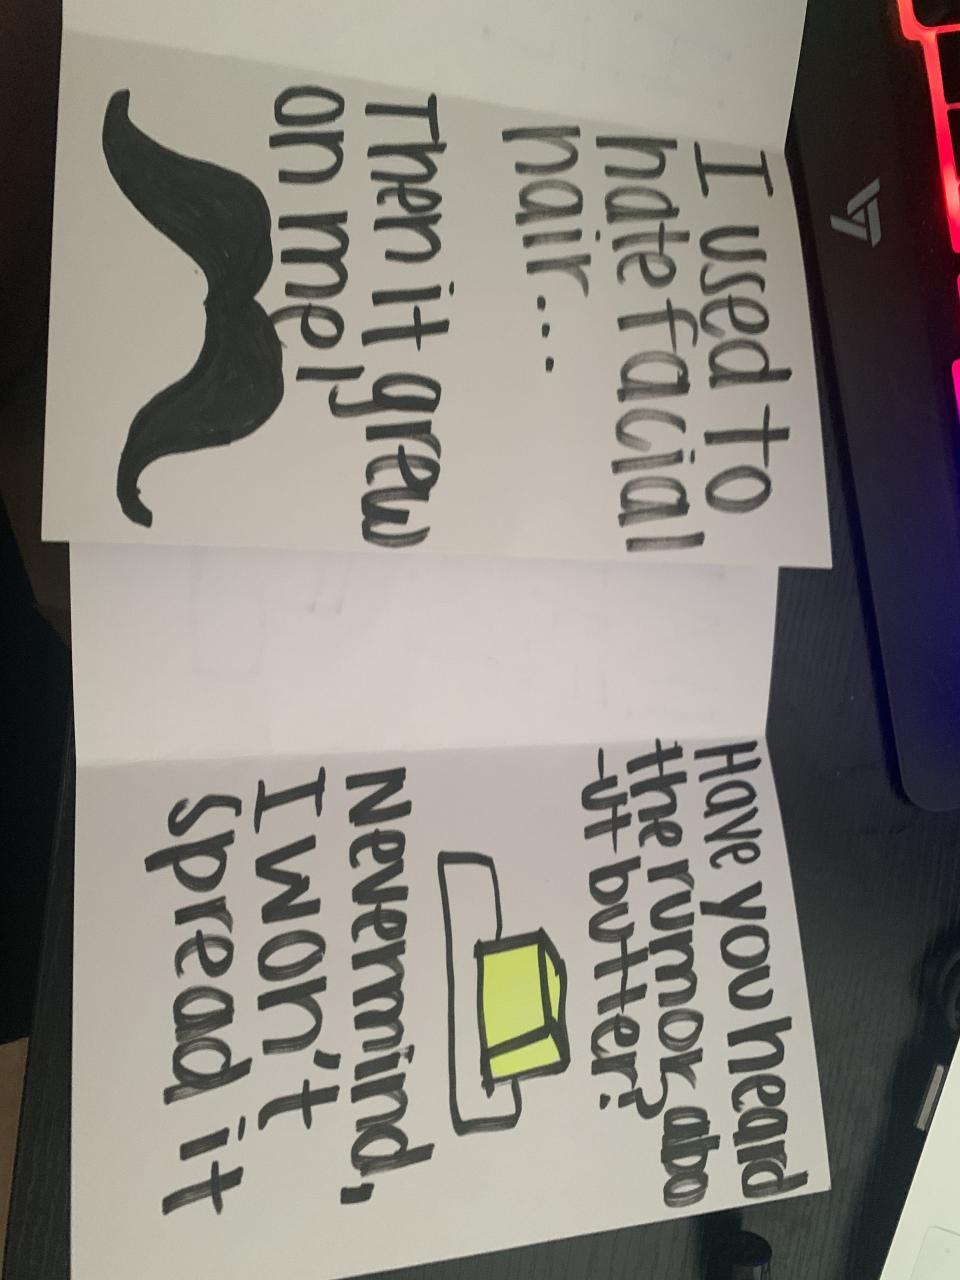 I used to
hate facial
hair...
Then it grew
on me!
Have you heard
the rumor abo
-ut butter?
Nevermind,
I won't
spread it